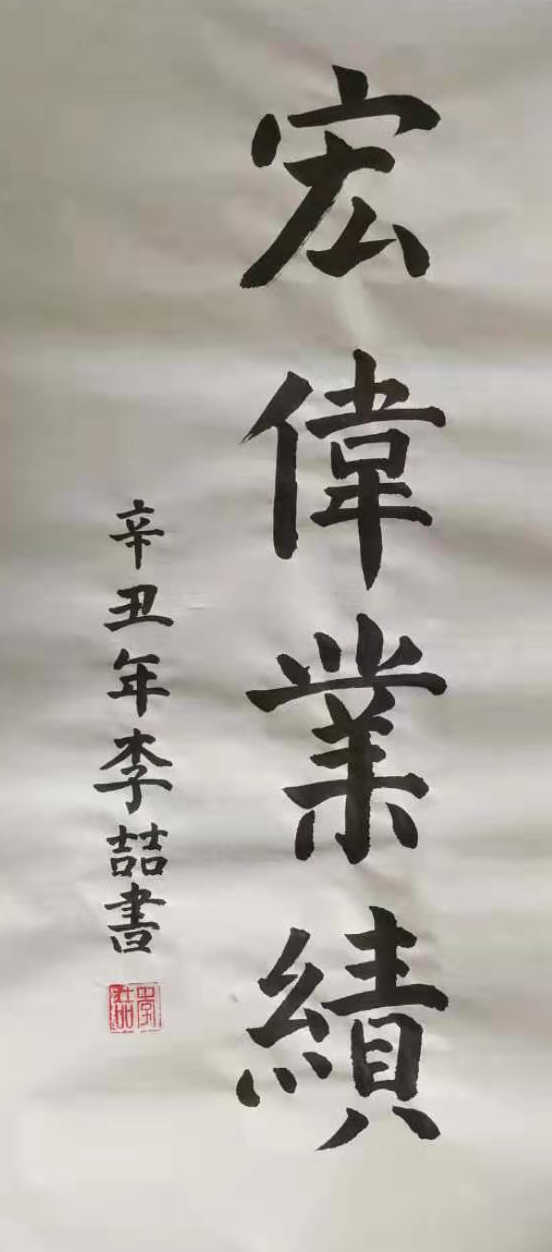 宏偉業績
辛丑年李喆書
李喆